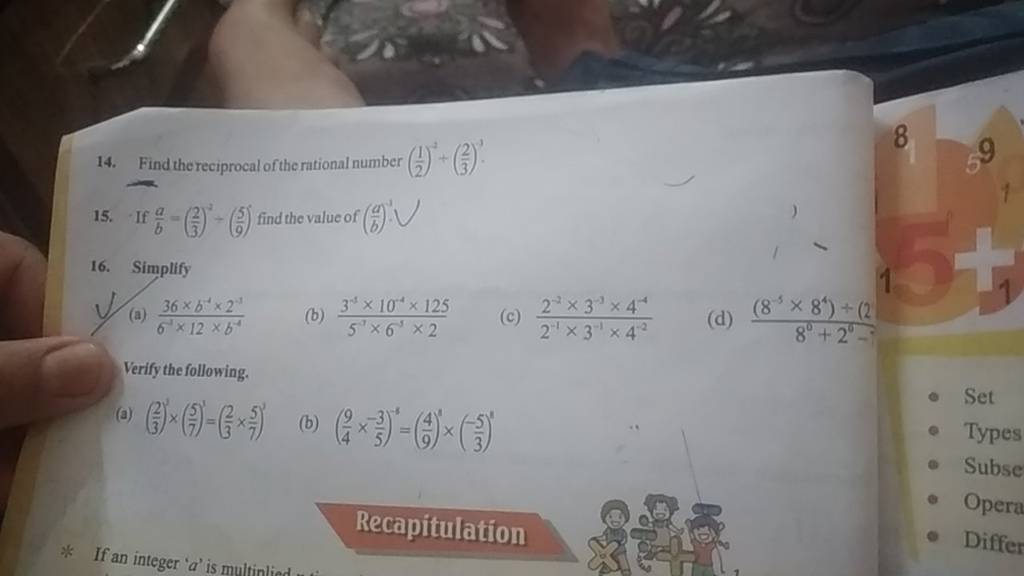 14. Find the reciprocal of the rational number (1/2)⁻² ÷ (2/3)⁻³.
15. If a/b = (2/3)⁻² ÷ (5/9) find the value of (a/b)
16. Simplify
(a) 36 × b⁻⁴ × 2⁻³ / 6⁻³ × 12 × b⁻⁸ (b) 3⁻⁵ × 10⁻⁴ × 125 / 5⁻⁷ × 6⁻⁵ × 2 (c) 2⁻² × 3⁻³ × 4⁻⁴ / 2⁻¹ × 3⁻¹ × 4⁻² (d) (8⁻⁵ × 8⁴) ÷ (2 / 8⁰ + 2⁰ −
Verify the following.
(a) (2/3) × (5/7) = (2/3 × 5/7) (b) (9/4 × −3/5)⁻⁸ = (4/9)⁸ × (−5/3)⁸
Recapitulation
* If an integer ‘a’ is multiplied
8
1
5
9
1
5+
1
1
• Set
• Types
• Subse
• Opera
• Differ